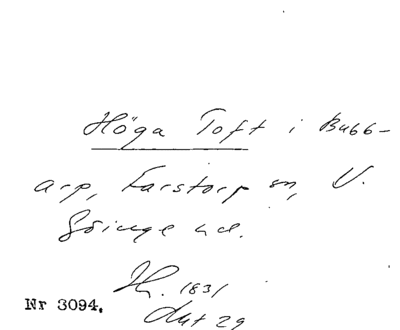 Höga Toft i Bubb-
arp, Farstorp sn, V.
Göinge hd.
1831
Nr 3094.
Akt 29